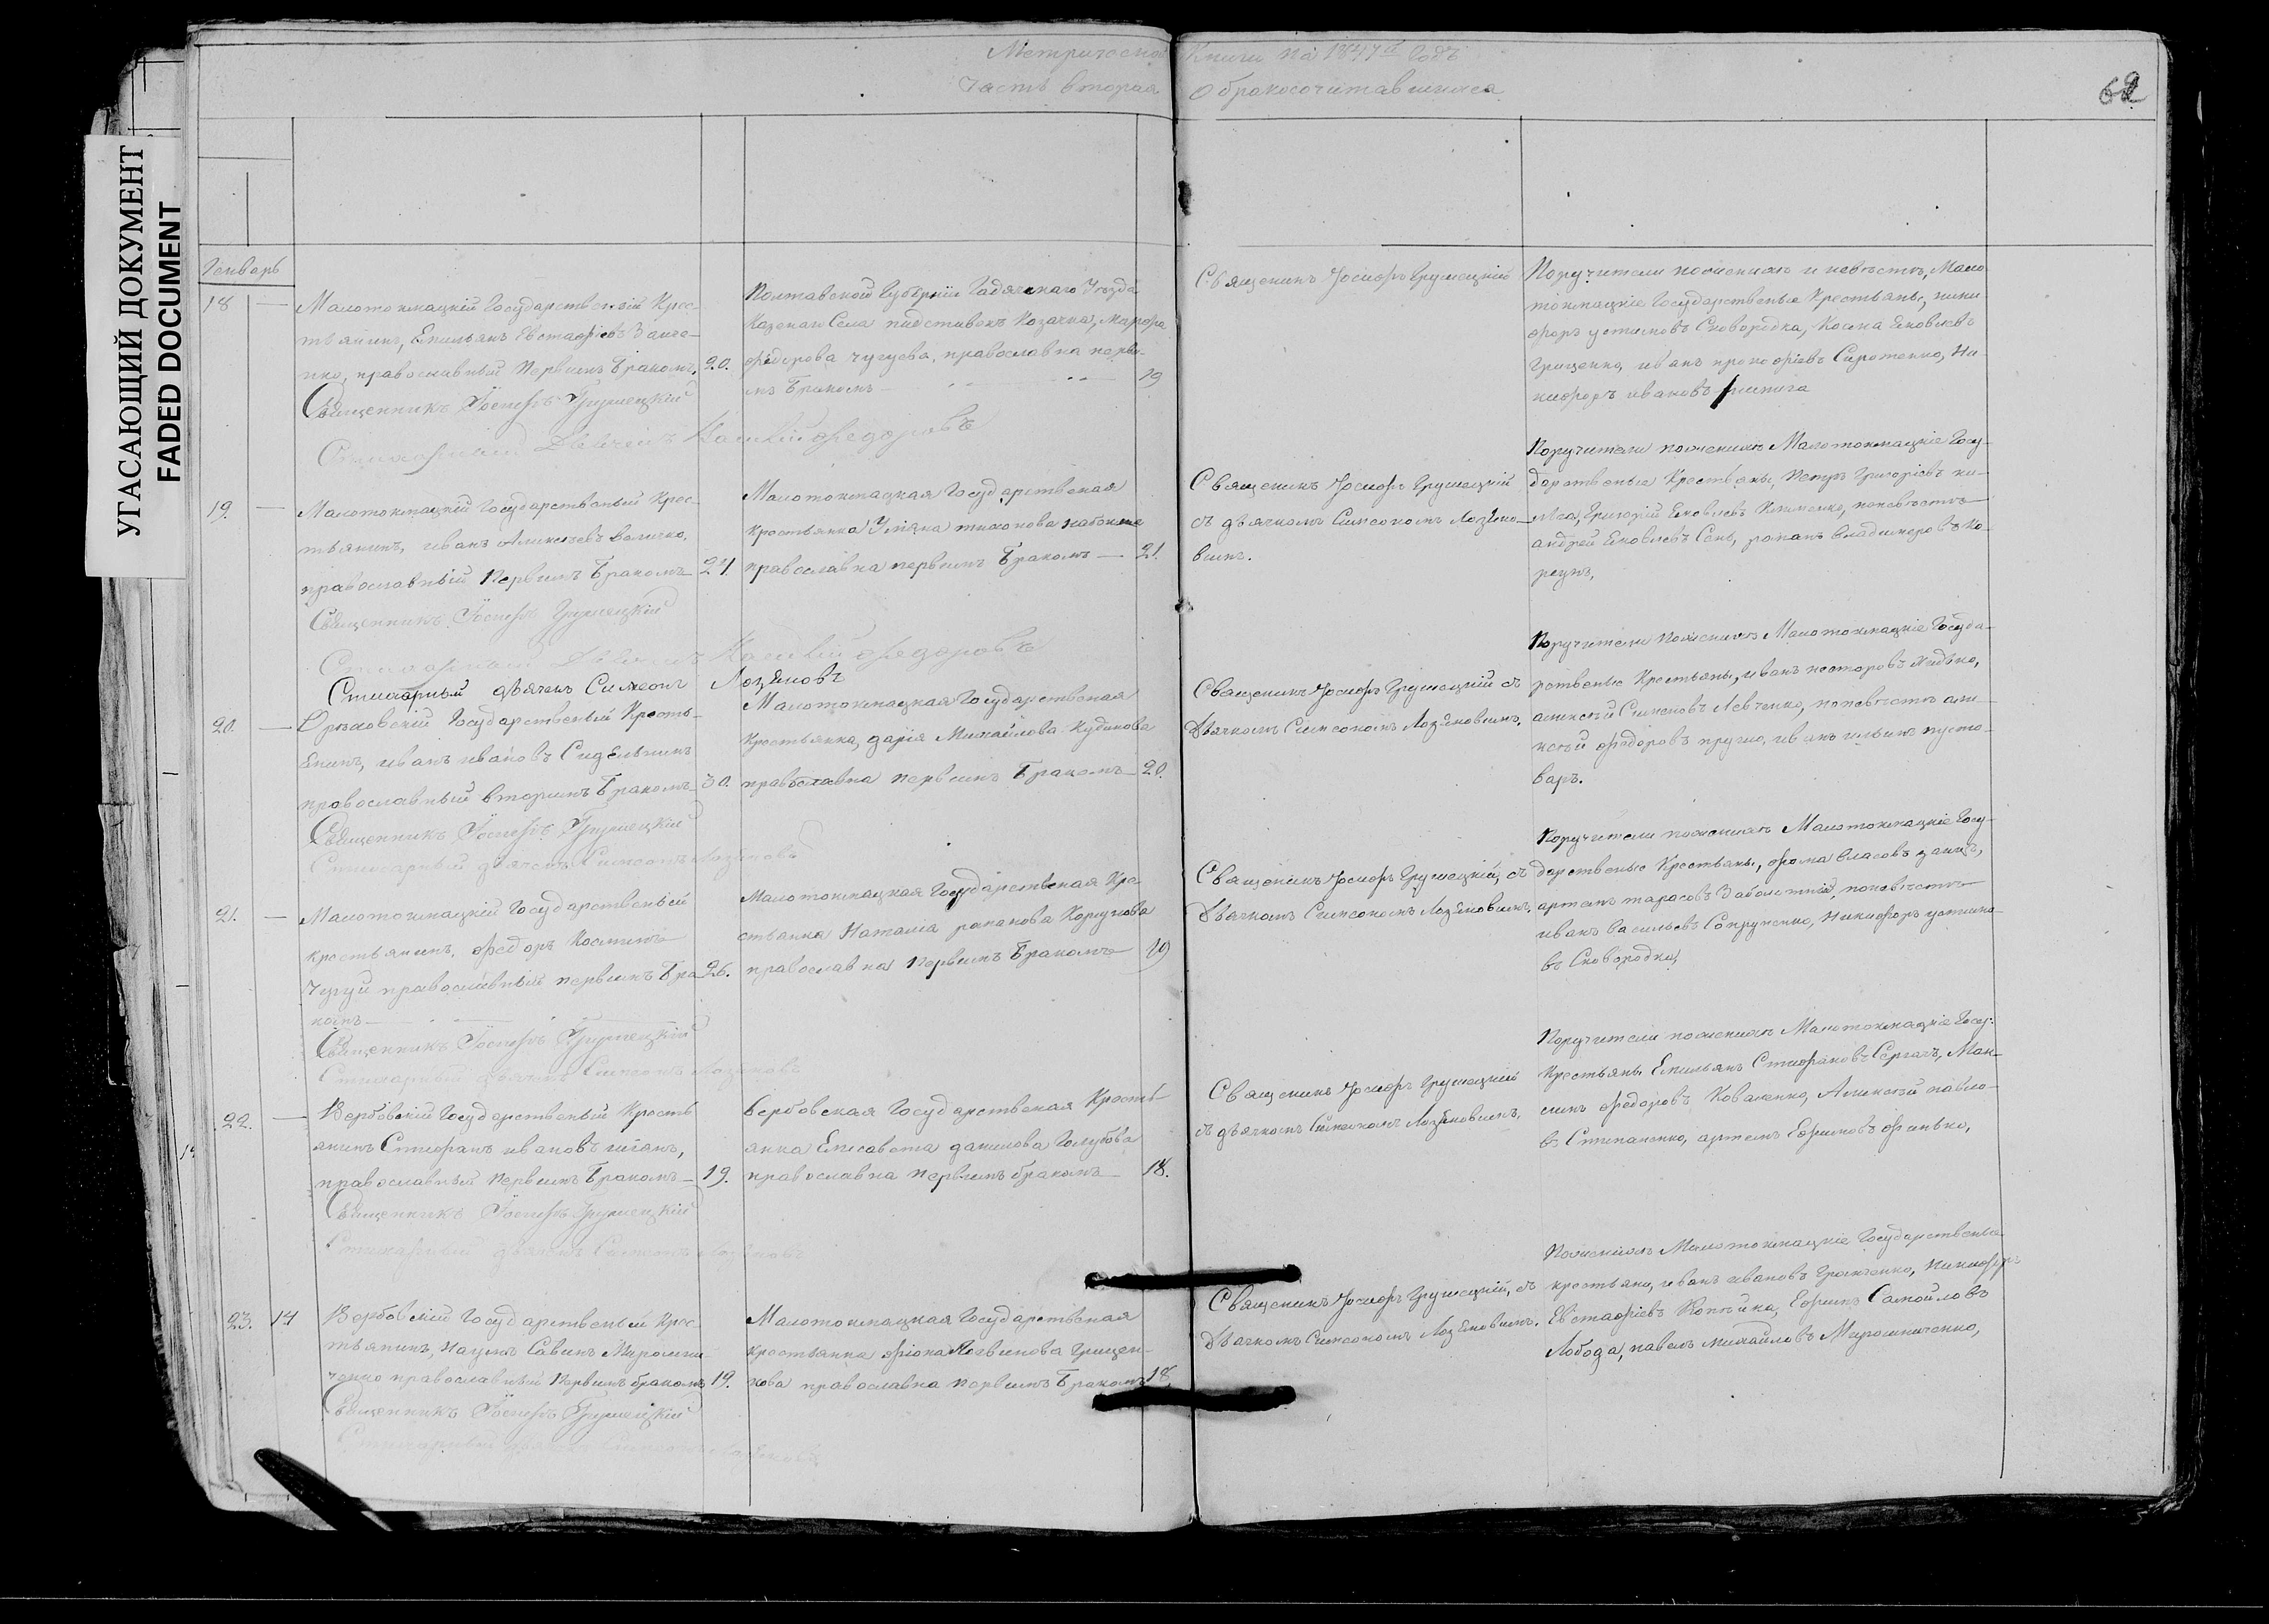 УГАСАЮЩИЙ ДОКУМЕНТ
FADED DOCUMENT
Метрической Книги на 1847й Годъ
Часть вторая О бракосочитавшихся
62
Генварь
18 — Малотокмацкій Государственій Крес-
тьянинъ, Емильянъ Евстафіевъ
православный Первымъ Бракомъ, 20.
Священникъ Іосифъ Грушецкій
Стихарный Дьячекъ Федоровъ
Полтавской Губерніи Гадячскаго Уезда
Казенаго Села Козачка, Марфа
Федорова Чугуева, православна первы-
мъ Бракомъ — 19
Священикъ Іосифъ Грушецкій
Поручители поженихъ и невѣстѣ, Мало
токмацкіе Государственые Крестьяне, ники
форъ устимовъ Сковородка, Косма Яковлевъ
Грищенко, иванъ прокофіевъ Сиротенко, Ни-
кифоръ ивановъ
19. — Малотокмацкій Государственый Крес-
тьянинъ, иванъ Аликсѣевъ величко,
православный Первымъ Бракомъ 21.
Священникъ Іосифъ Грушецкій
Стихарный Дьячекъ Федоровъ
Стихарный дьячекъ Симеонъ Лозяновъ
Малотокмацкая Государственая
крестьянка Уліяна тихонова
православна первымъ Бракомъ — 21.
Священикъ Іосифъ Грушецкій
съ дьячкомъ Симеономъ Лозяно-
вымъ.
Поручители поженихъ Малотокмацкіе Госу-
дарственые Крестьяны, Петръ Григоріевъ
Григорій Яковлевъ Клименко, поневѣстѣ
андрей Яковлевъ Сень, романъ владимеровъ Ко-
рецъ,
20. — Государственый Кресть-
янинъ, иванъ ивановъ Сидельникъ
православный вторымъ Бракомъ 30.
Священникъ Іосифъ Грушецкій
Стихарный дьячекъ Симеонъ Лозяновъ
Малотокмацкая Государственая
Крестьянка, дарія Михайлова Кудинова
православна первымъ Бракомъ 20.
Священикъ Іосифъ Грушецкій съ
Дьячкомъ Симеономъ Лозяновымъ.
Поручители Поженихъ Малотокмацкіе Госуда-
рственые Крестьяны, иванъ несторовъ
аликсѣй Сименовъ Левченко, поневѣстѣ али-
ксѣй федоровъ иванъ ильинъ пусто-
варъ.
21. — Малотокмацкій Государственый
крестьянинъ, федоръ Косминъ
Чугуй православный первымъ Бра- 26.
комъ —
Священникъ Іосифъ Грушецкій
Стихарный дьячекъ Симеонъ Лозяновъ
Малотокмацкая Государственая Кре-
стьянка Наталія романова
православна Первымъ Бракомъ 19
Священикъ Іосифъ Грушецкій, съ
Дьячкомъ Симеономъ Лозяновымъ.
Поручители поженихъ Малотокмацкіе Госу-
дарственые Крестьяны, фома власовъ заицъ,
артемъ тарасовъ Заболотній, поневѣстѣ
иванъ васильевъ Сопруненко, Никифоръ устимо-
въ Сковородка,
22. — Вербовскій Государственый Кресть
янинъ Стифанъ ивановъ
православный Первымъ Бракомъ — 19.
Священникъ Іосифъ Грушецкій
Стихарный дьячекъ Симеонъ Лозяновъ
вербовская Государственая Кресть-
янка Елисавета данилова Голубова
православна первымъ бракомъ 18.
Священикъ Іосифъ Грушецкій
съ дьячкомъ Симеономъ Лозяновымъ,
Поручители поженихъ Малотокмацкіе Госу:
Крестьяны Емильянъ Стифановъ Сергачъ, Мак-
симъ федоровъ Коваленко, Аликсѣй павло-
въ Стипаненко, артемъ Ефимовъ
23. 14 Вербовскій Государственый Крес
тьянинъ, Наумъ Савинъ Мирошни
ченко православный Первымъ бракомъ 19.
Священникъ Іосифъ Грушецкій
Стихарный дьячекъ Симеонъ Лозяновъ
Малотокмацкая Государственая
крестьянка Грищен-
кова православна первымъ Бракомъ 18
Священикъ Іосифъ Грушецкій, съ
Дьячкомъ Симеономъ Лозяновымъ.
Поженихъ Малотокмацкіе Государственые
крестьяны, иванъ ивановъ Никифоръ
Евстафіевъ Копѣйка, Ефимъ Самойловъ
Лобода, павелъ михайловъ Мирошниченко,